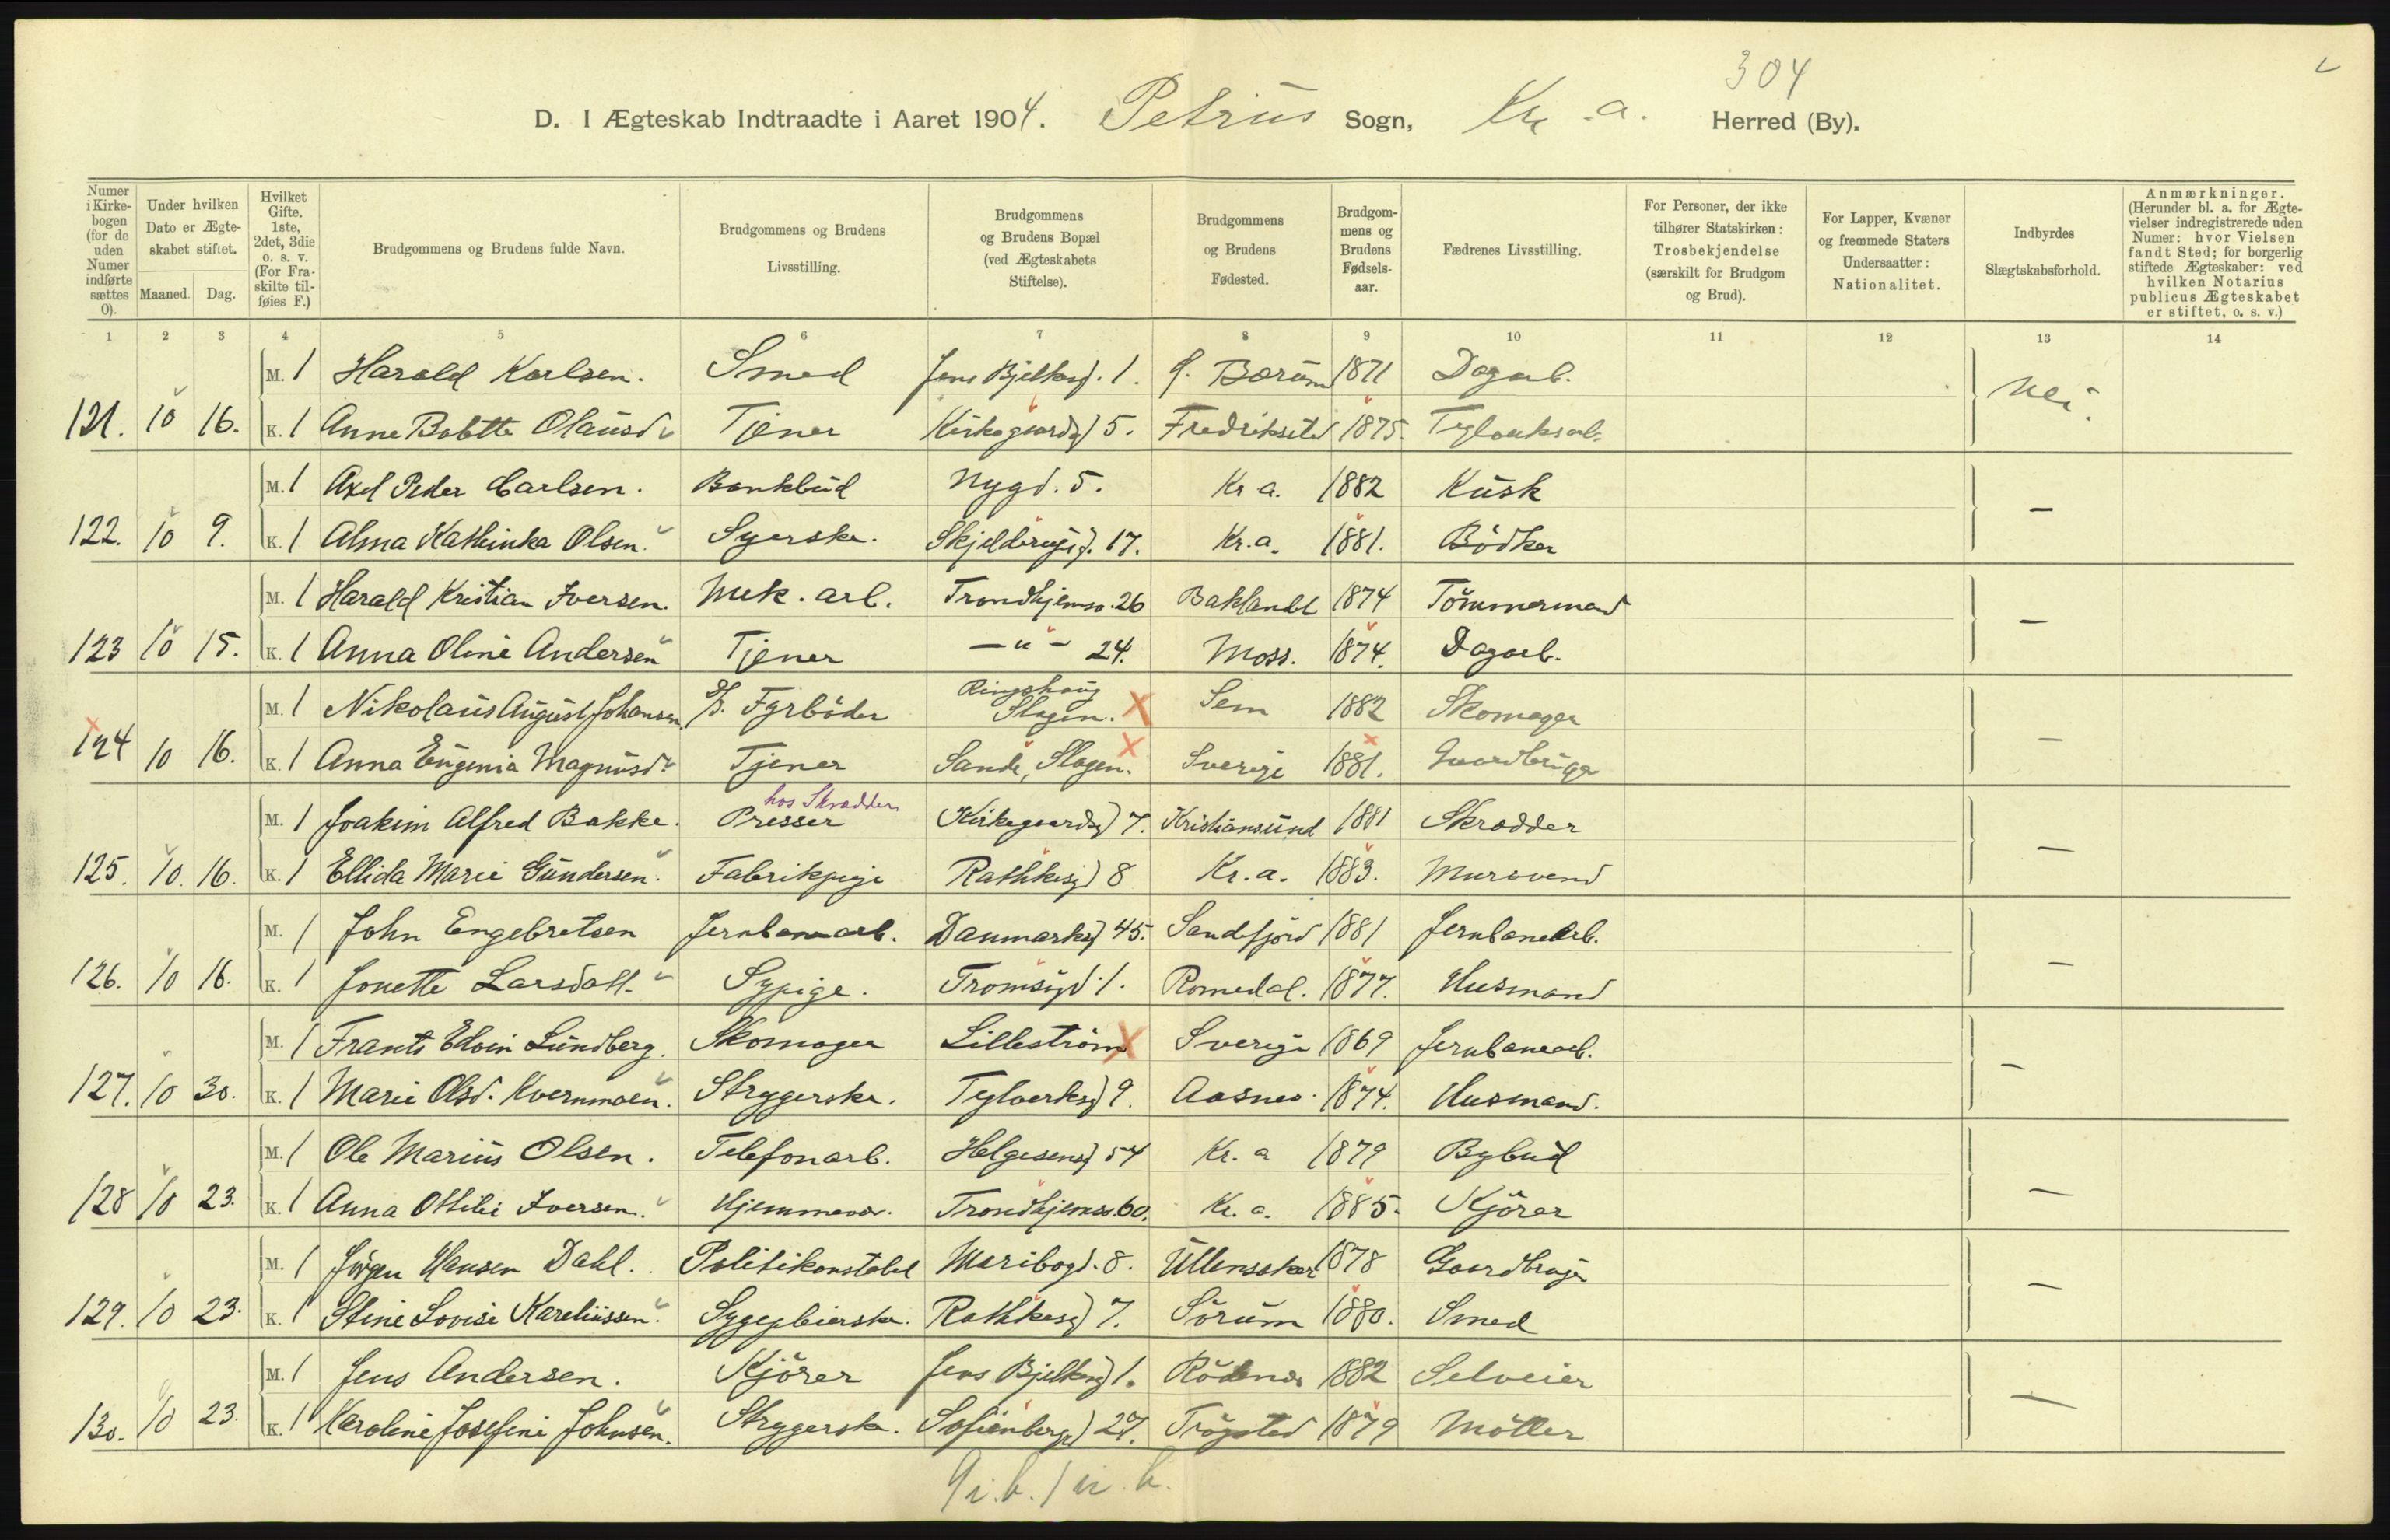 304
D. I Ægteskab Indtraadte i Aaret 1904. Petrus Sogn, Kr.a. Herred (By).
Numer i Kirkebogen (for de uden Numer indførte sættes 0).
Under hvilken Dato er Ægteskabet stiftet.
Maaned. Dag.
Hvilket Gifte. 1ste, 2det, 3die o. s. v. (For Fraskilte tilføies F.)
Brudgommens og Brudens fulde Navn.
Brudgommens og Brudens Livsstilling.
Brudgommens og Brudens Bopæl (ved Ægteskabets Stiftelse).
Brudgommens og Brudens Fødested.
Brudgommens og Brudens Fødselsaar.
Fædrenes Livsstilling.
For Personer, der ikke tilhører Statskirken: Trosbekjendelse (særskilt for Brudgom og Brud).
For Lapper, Kvæner og fremmede Staters Undersaatter: Nationalitet.
Indbyrdes Slægtskabsforhold.
Anmærkninger. (Herunder bl. a. for Ægtevielser indregistrerede uden Numer: hvor Vielsen fandt Sted; for borgerlig stiftede Ægteskaber: ved hvilken Notarius publicus Ægteskabet er stiftet, o. s. v.)
1 2 3 4 5 6 7 8 9 10 11 12 13 14
M. 1 Harald Karlsen. Smed Jens Bjelkesg. 1. Bærum 1871 Dagarb. Nei.
121. 10 16. K. 1 Anne Bolette Olausd. Tjener Kirkegaardsg 5. Fredriksstad 1875. Teglverksarb.
M. 1 Axel Peder Carlsen. Bankbud Nygd. 5. Kr a. 1882 Kusk —
122. 10 9. K. 1 Alma Kathinka Olsen. Syerske. 17. Kr.a. 1881. Bödker
M. 1 Harald Kristian Iversen. Mek. arb. Trondhjemsv. 26 Baklandet 1874 Tömmermand —
123 10 15. K. 1 Anna Oline Andersen Tjener — " — 24. Moss. 1874. Dagarb.
M. 1 Nikolaus August Johansen S/S. Fyrböder Ringshaug Slagen. Sem 1882 Skomager —
124 10 16. K. 1 Anna Eugenia Magnusd. Tjener Sande, Slagen. Sverige 1881. Gaardbruger
M. 1 Joakim Alfred Bakke. Presser hos Skrædder Kirkegaardsg 7. Kristiansund 1881 Skrædder —
125. 10. 16. K. 1 Ellida Marie Gundersen. Fabrikpige Rathkesg 8 Kr. a. 1883. Mursvend
M. 1 John Engebretsen Jernbanearb. Danmarksg 45. Sandefjord 1881 Jernbanearb. —
126. 10 16. K. 1 Jonette Larsdatt. Sypige. Tromsögd. 1. Romedal. 1877. Husmand
M. 1 Frants Edvin Lundberg. Skomager Lilleström Sverige 1869 Jernbanearb. —
127. 10 30. K. 1 Marie Olsd. Kvernmoen. Strygerske. Teglverksg 9. Aasnes. 1874. Husmand.
M. 1 Ole Marius Olsen. Telefonarb. Helgesensg 54 Kr. a 1879 Bybud —
128 10 23. K. 1 Anna Ottilie Iversen. Hjemmevær. Trondhjemsv. 60. Kr. a. 1885. Kjörer
M. 1 Jörgen Hansen Dahl. Politikonstabel Maribogd. 8. Ullensaker 1878 Gaardbruger —
129. 10 23. K. 1 Stine Lovise Kareliussen. Sygepleierske. Rathkesg 7. Sörum 1880. Smed
M. 1 Jens Andersen. Kjörer Jens Bjelkesg 1. Rödenes 1882 Selveier —
130. 10 23. K. 1 Karoline Josefine Johnsen. Strygerske. Sofienbergg 27. Trögstad 1879 Möller
9 i. b. 1 u. b.